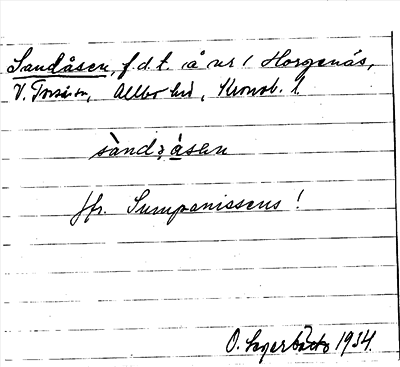 Sandåsen, f.d.t. å nr 1 Horgenäs,
V. Torsås, Allbo hd, Kronob. l.
sàndåsen
Jfr. Sumpanissens!
O. Lagerbäck 1934.